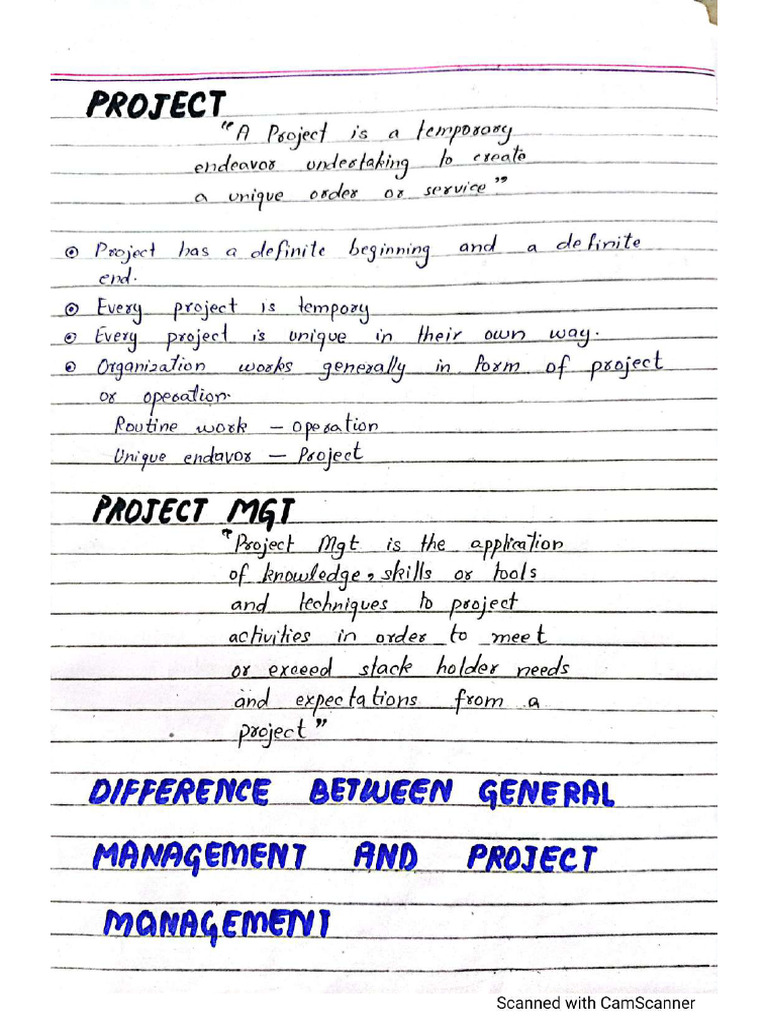 PROJECT
"A Project is a temporary
endeavor undertaking to create
a unique order or service"
Project has a definite beginning and a definite
end.
Every project is tempory
Every project is unique in their own way.
Organization works generally in form of project
or operation.
Routine work – operation
Unique endavor – Project
PROJECT MGT
"Project Mgt is the application
of knowledge, skills or tools
and techniques to project
activities in order to meet
or exceed stack holder needs
and expectations from a
project"
DIFFERENCE BETWEEN GENERAL
MANAGEMENT AND PROJECT
MANAGEMENT
Scanned with CamScanner